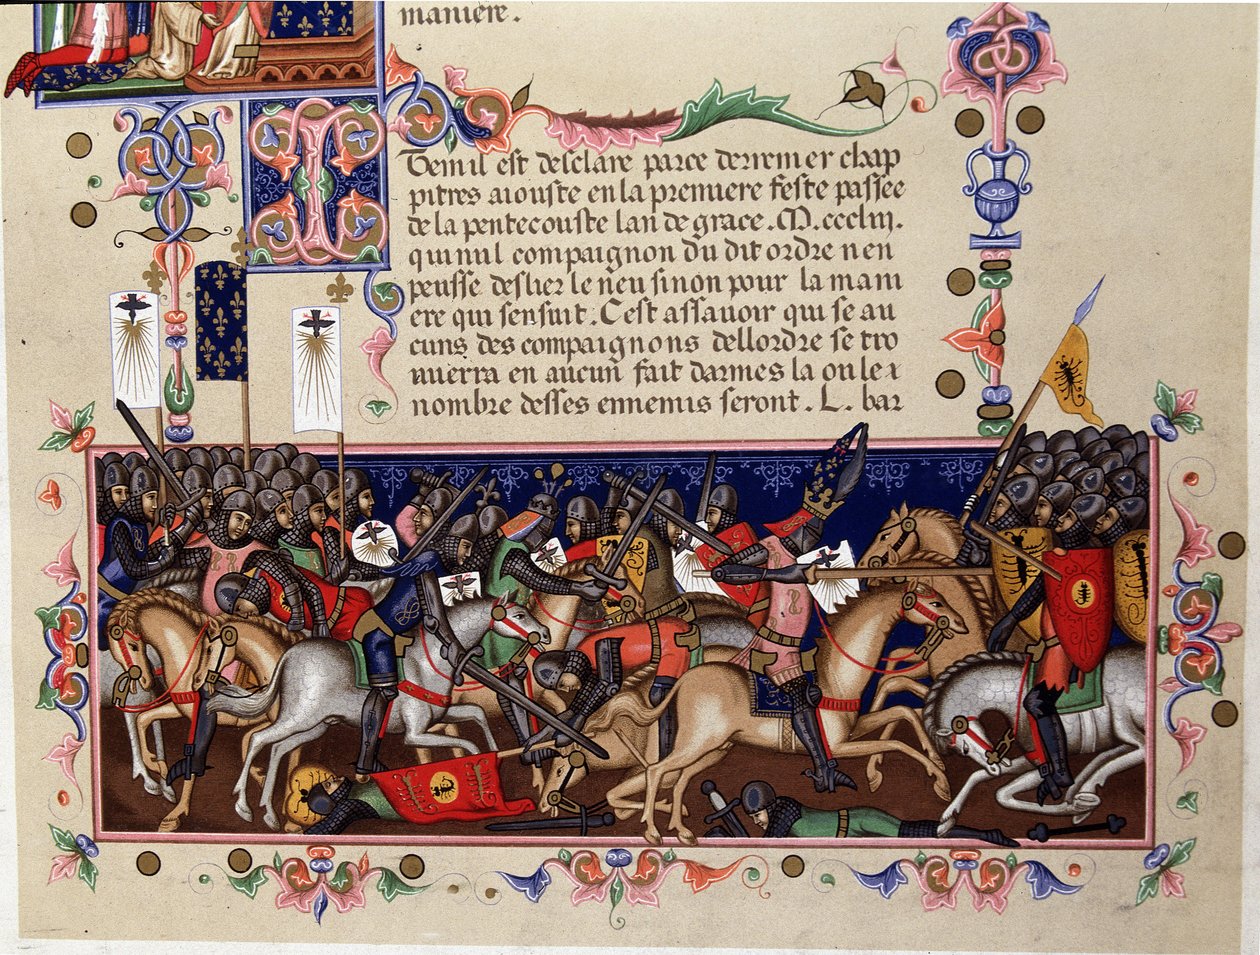 maniere.
Item il est desclare parce derrenier chap
pitres aiouste en la premiere feste passee
de la pentecouste lan de grace. M. ccc liii.
qui nul compaignon du dit ordre nen
peusse deslier le neu sinon pour la mani
ere qui sensuit. Cest assavoir qui se au
cuns des compaignons dellordre se tro
uuerra en aucun fait darmes la ou le
nombre desses ennemis seront. L. bar